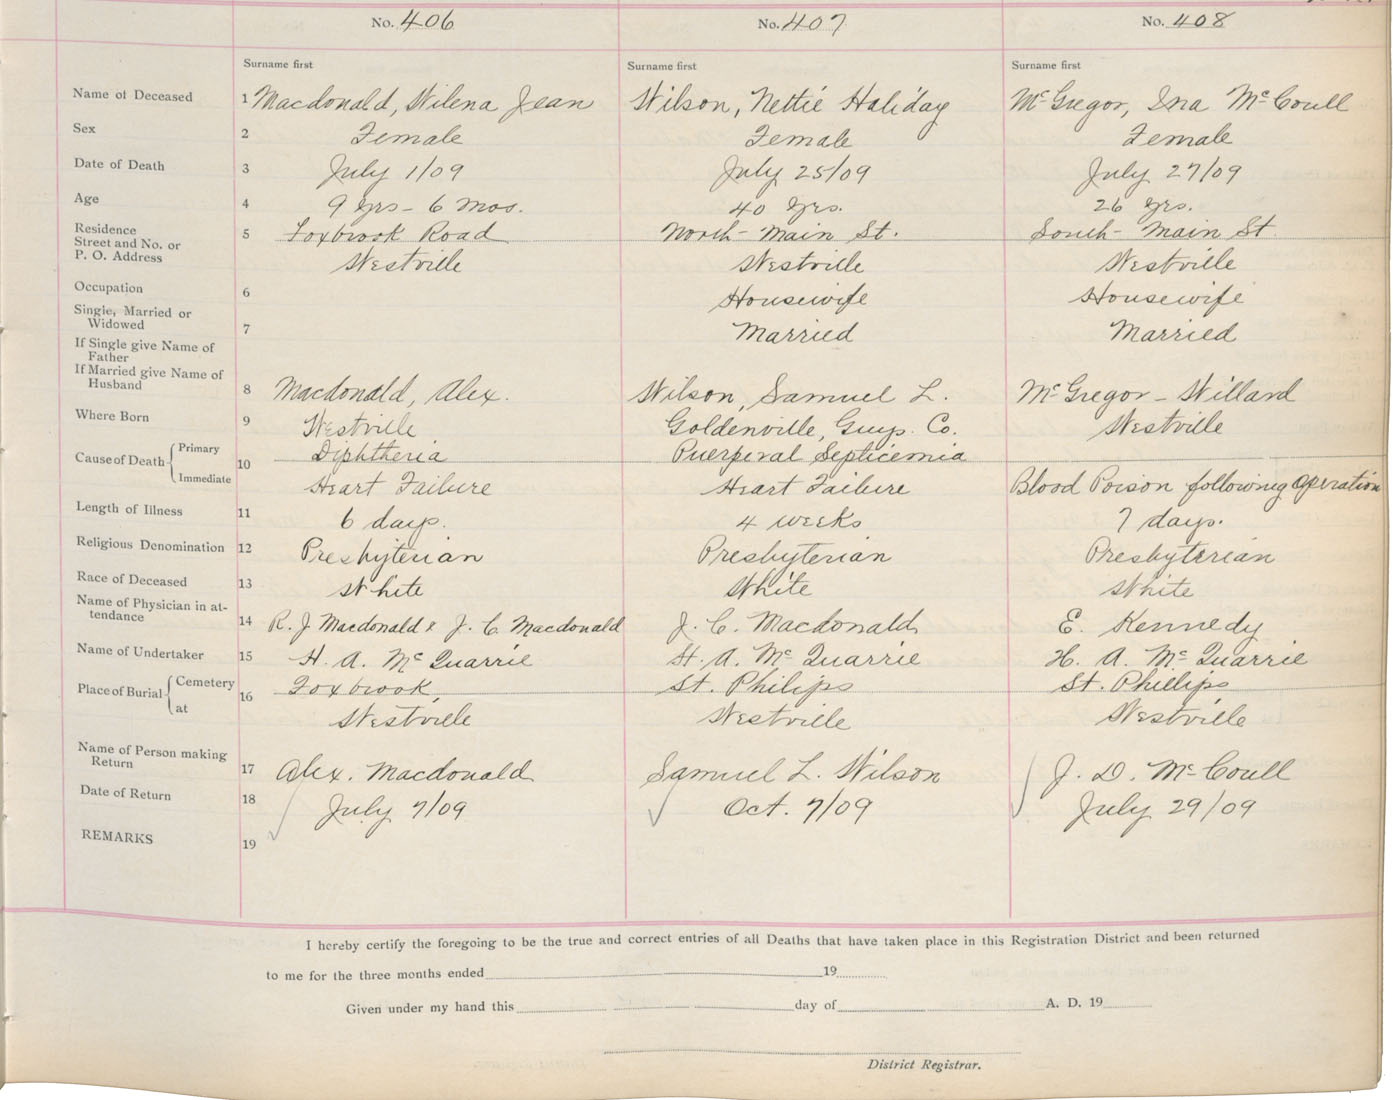 No. 406 No. 407 No. 408
Surname first Surname first Surname first
Name of Deceased 1 Macdonald, Wilena Jean Wilson, Nettie Haliday McGregor, Ina McCoull
Sex 2 Female Female Female
Date of Death 3 July 1/09 July 25/09 July 27/09
Age 4 9 yrs - 6 mos. 40 yrs. 26 yrs.
Residence 5 Foxbrook Road North Main St. South Main St
Street and No. or
P. O. Address Westville Westville Westville
Occupation 6 Housewife Housewife
Single, Married or
Widowed 7 Married Married
If Single give Name of
Father
If Married give Name of
Husband 8 Macdonald, Alex. Wilson, Samuel L. McGregor - Willard
Where Born 9 Westville Goldenville, Guys. Co. Westville
Cause of Death Primary 10 Diphtheria Puerperal Septicemia
Immediate Heart Failure Heart Failure Blood Poison following Operation
Length of Illness 11 6 days. 4 weeks 7 days.
Religious Denomination 12 Presbyterian Presbyterian Presbyterian
Race of Deceased 13 White White White
Name of Physician in at-
tendance 14 R. J Macdonald & J. C. Macdonald J. C. Macdonald E. Kennedy
Name of Undertaker 15 H. A. McQuarrie H. A. McQuarrie H. A. McQuarrie
Place of Burial Cemetery 16 Foxbrook, St. Philips St. Phillips
at Westville Westville Westville
Name of Person making
Return 17 Alex. Macdonald Samuel L. Wilson J. D. McCoull
Date of Return 18 July 7/09 Oct. 7/09 July 29/09
REMARKS 19
I hereby certify the foregoing to be the true and correct entries of all Deaths that have taken place in this Registration District and been returned
to me for the three months ended 19
Given under my hand this day of A. D. 19
District Registrar.